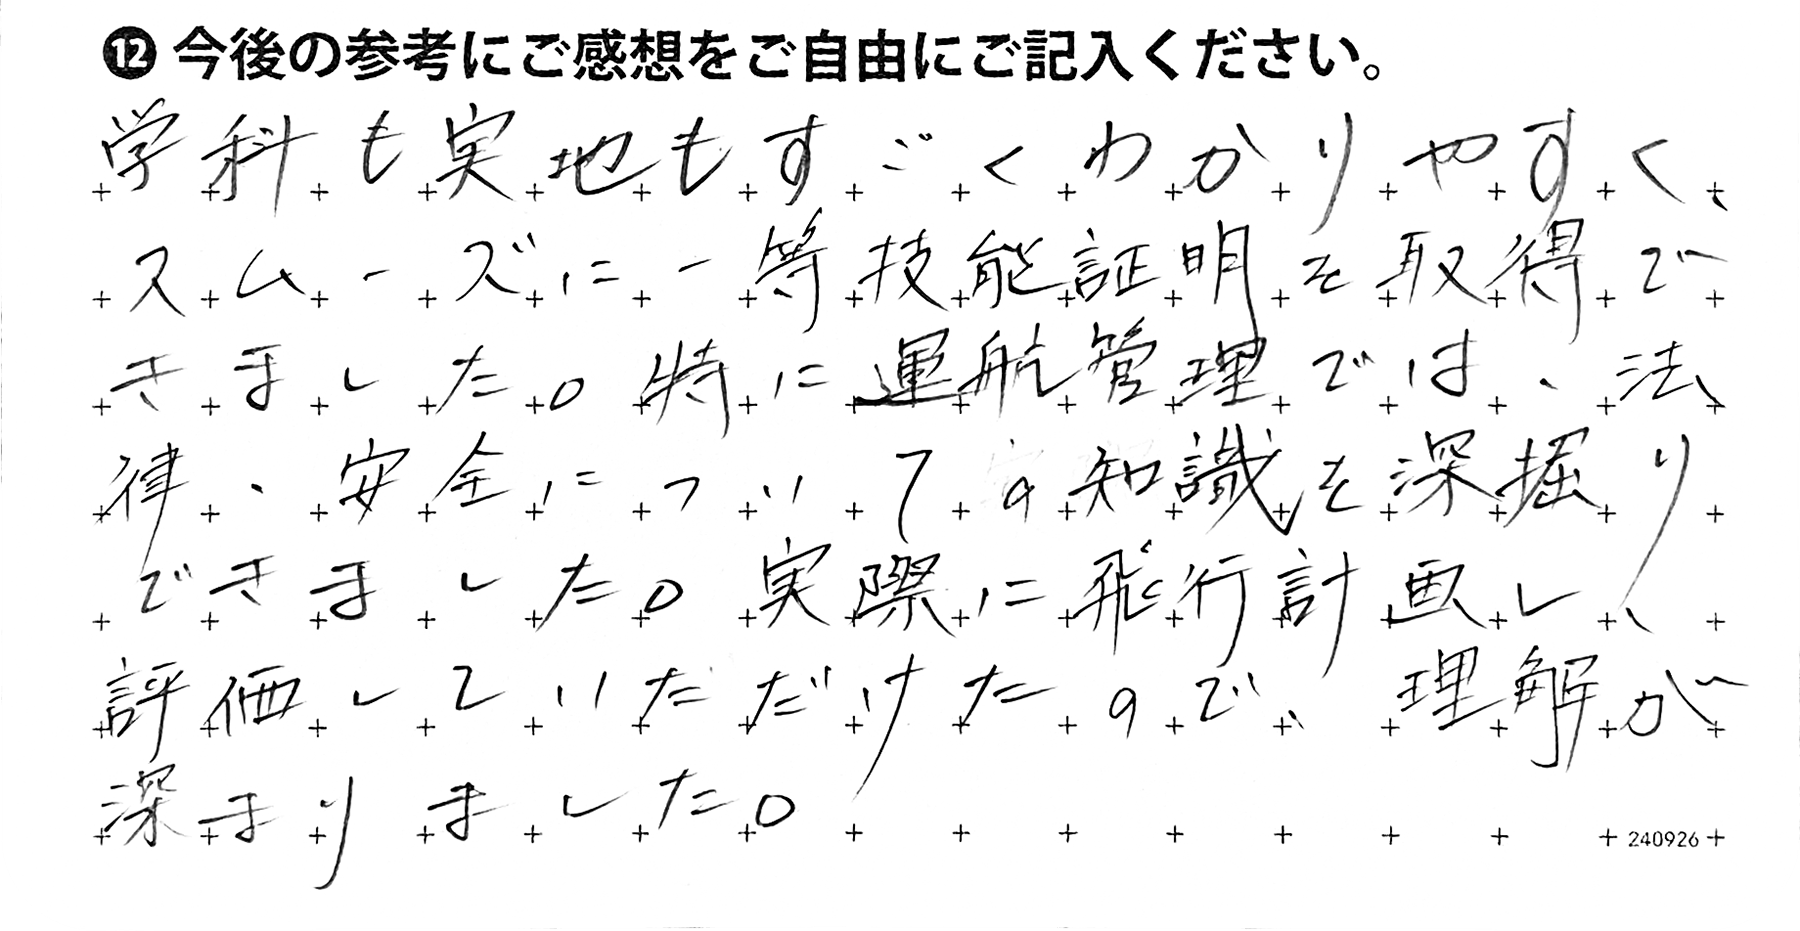 ⓬今後の参考にご感想をご自由にご記入ください。
学科も実地もすごくわかりやすく、
スムーズに一等技能証明を取得で
きました。特に運航管理では、法
律、安全についての知識を深掘り
できました。実際に飛行計画し、
評価していただけたので、理解が
深まりました。
240926